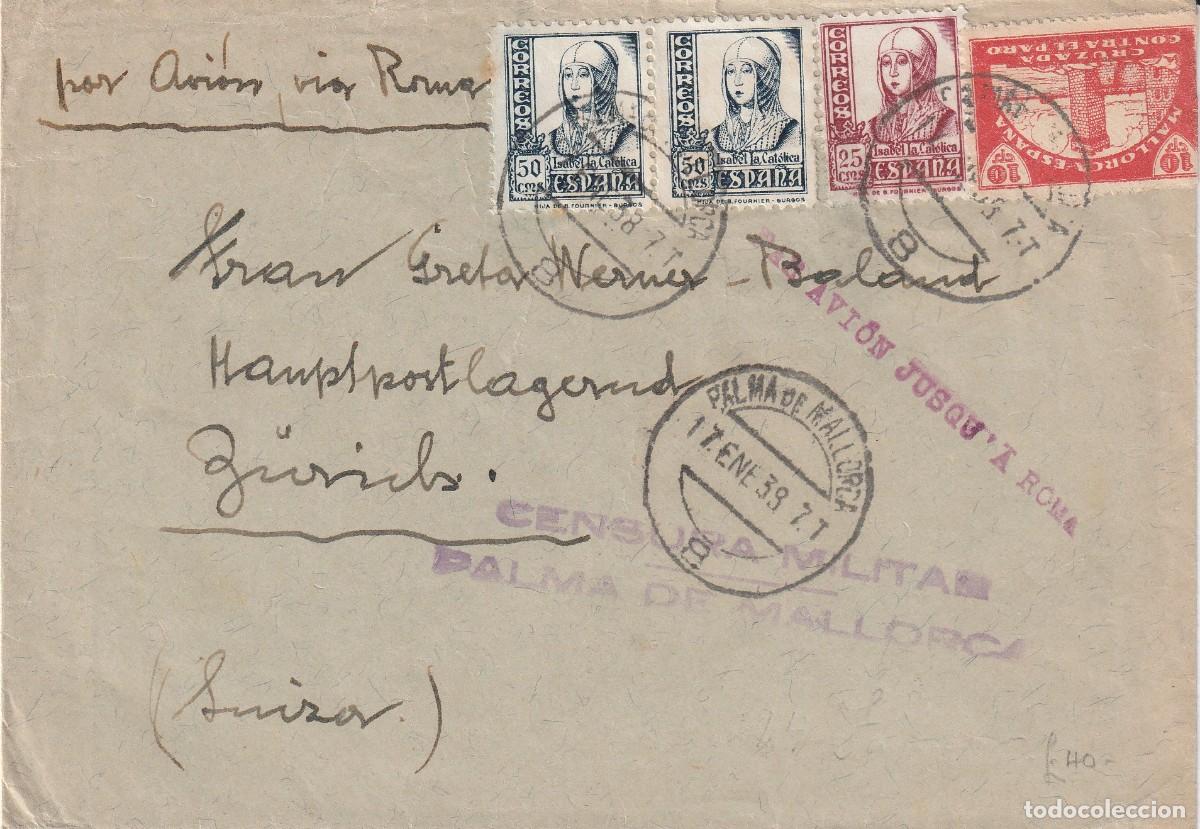 por Avión, via Roma
CORREOS
50 CTMS
Isabel la Católica
ESPAÑA
HIJA DE B. FOURNIER - BURGOS
CORREOS
50 CTMS
Isabel la Católica
ESPAÑA
HIJA DE B. FOURNIER - BURGOS
CORREOS
25 CTMS
Isabel la Católica
ESPAÑA
CRUZADA
CONTRA EL PARO
MALLORCA-ESPAÑA
10 10
38 7.T
8
38 7.T
8
Frau Greta Werner-Baland
Hauptpostlagernd
Zürich.
(Suiza.)
AVIÓN JUSQU'À ROMA
PALMA DE MALLORCA
17.ENE 38 7.T
8
CENSURA MILITAR
PALMA DE MALLORCA
40-
todocoleccion